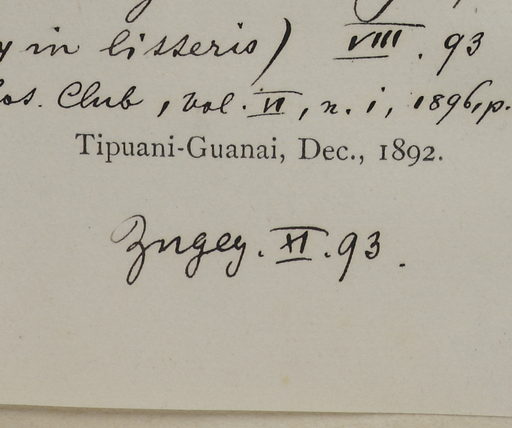 y in litteris) VIII. 93
os. Club, vol. VI, n. i, 1896, p.
Tipuani-Guanai, Dec., 1892.
XI. 93.